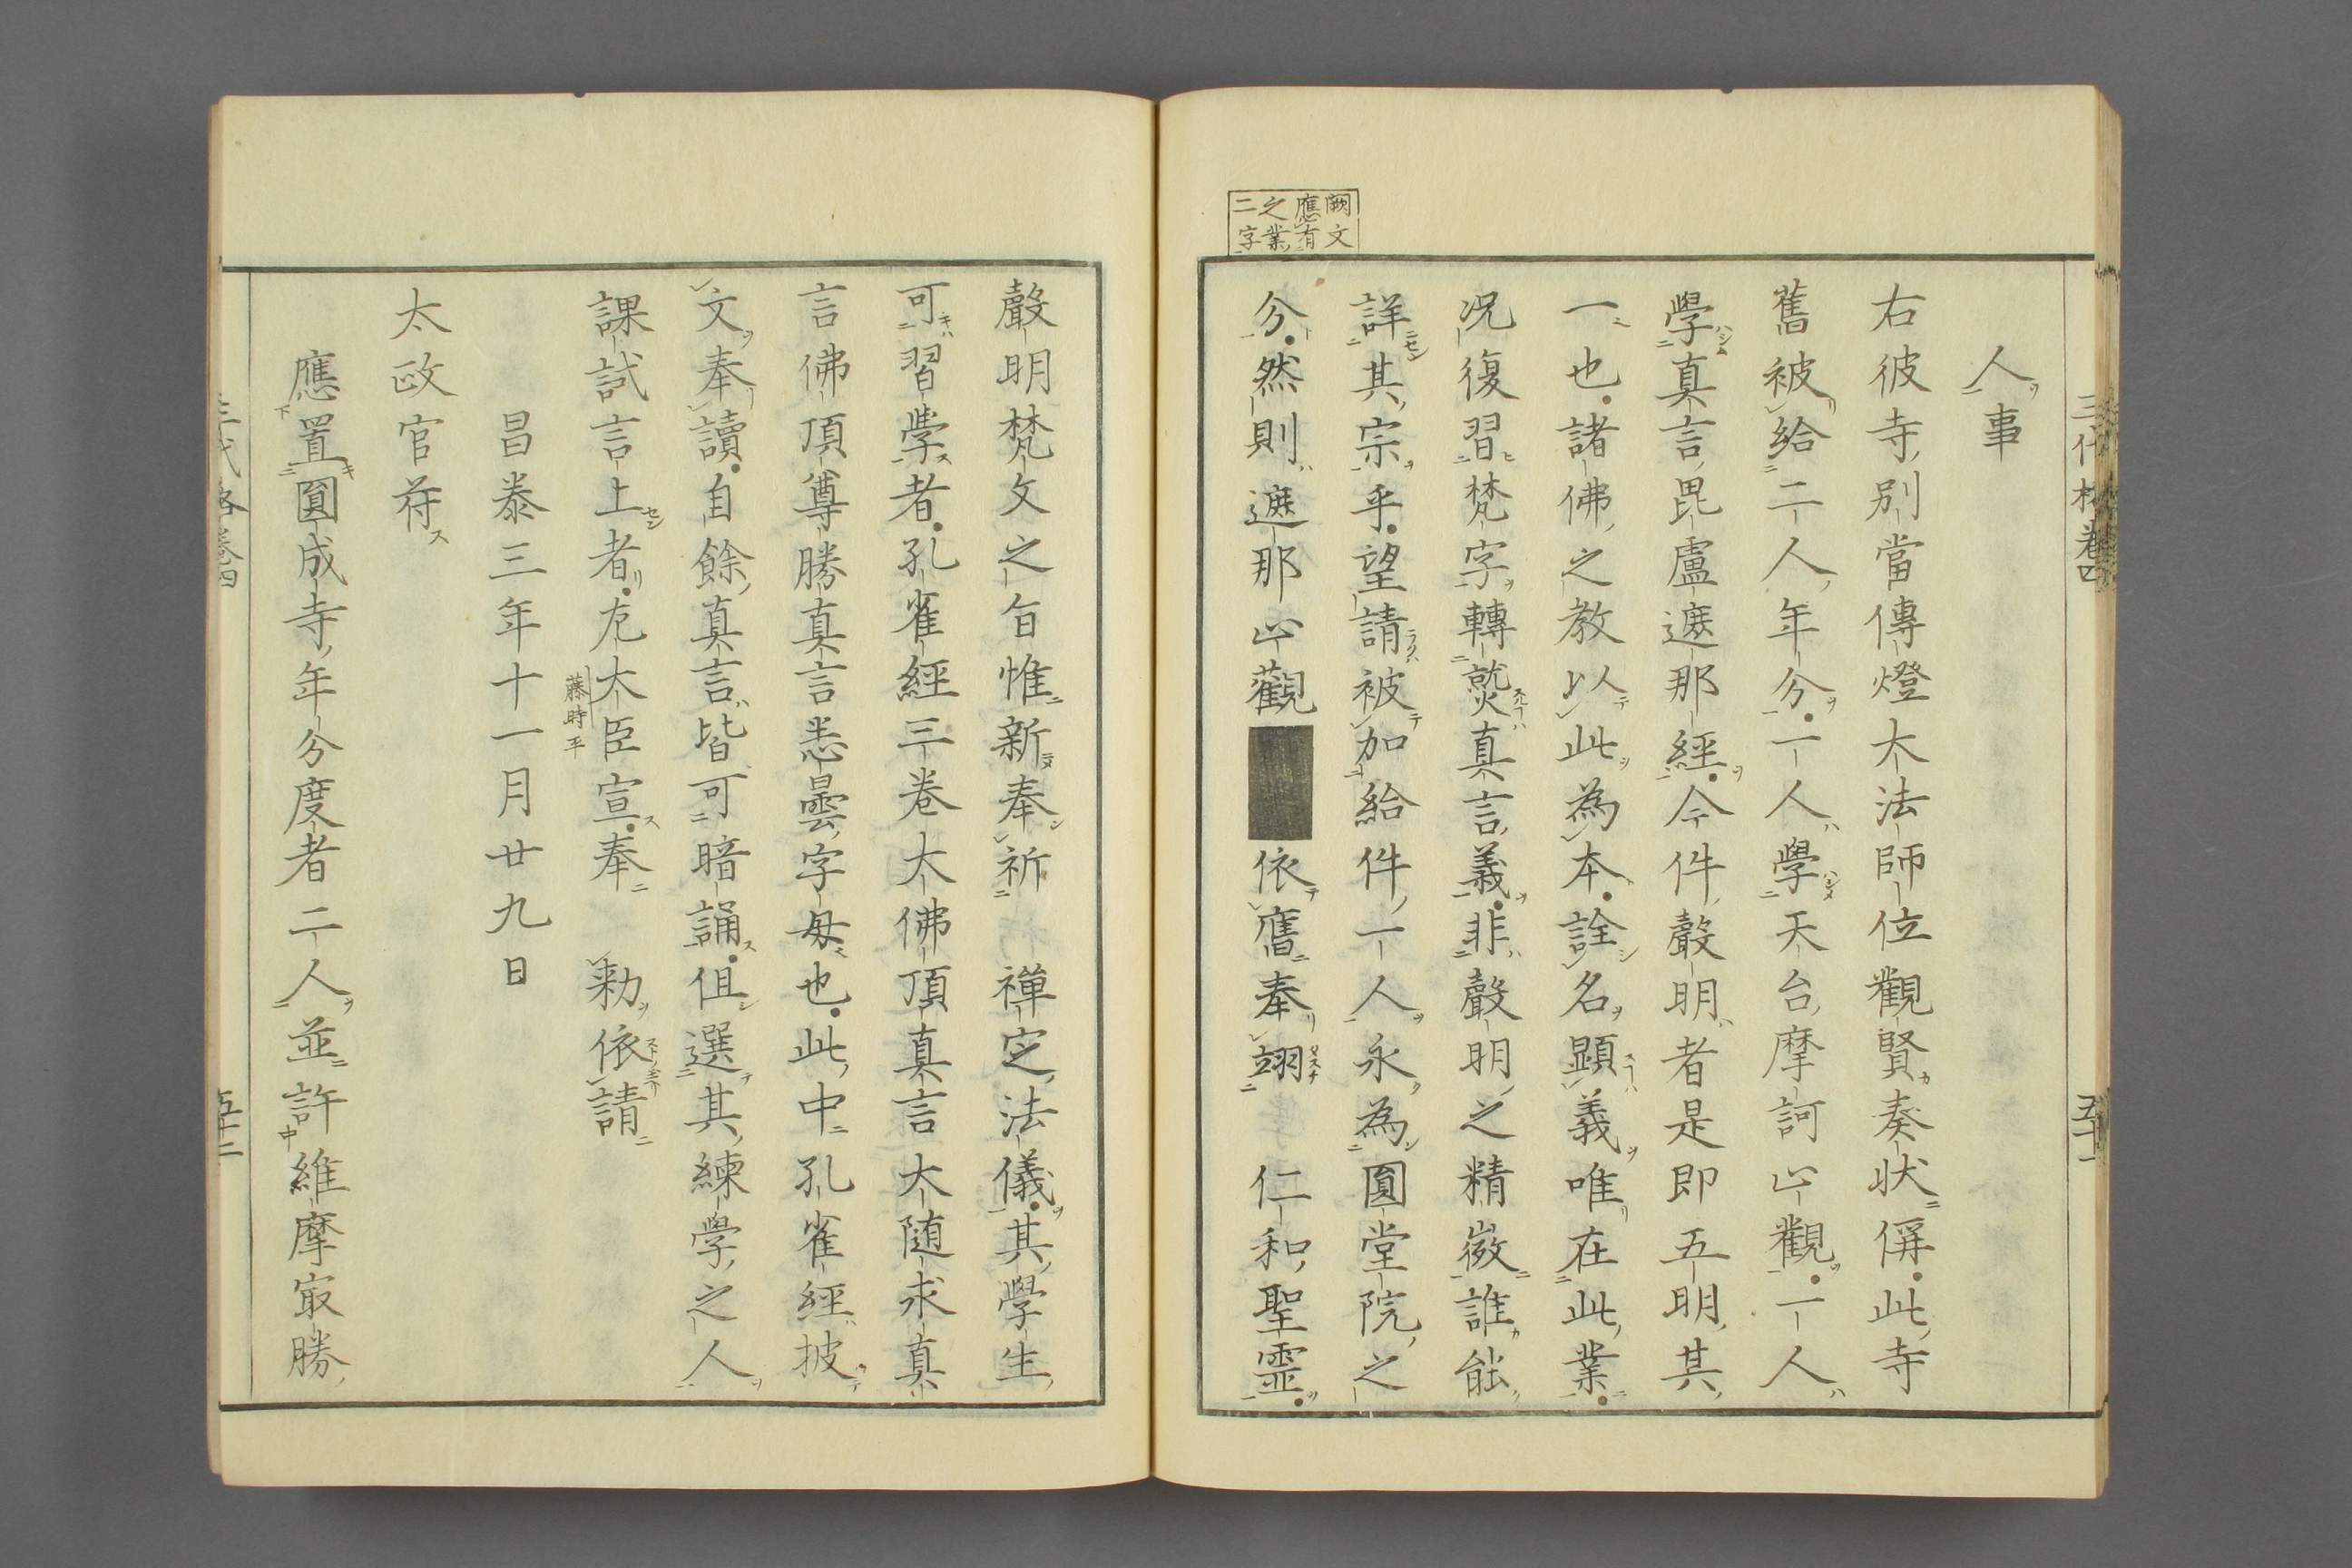 闕文
應有
之業
二字
三代格卷四
五十一
人事
右彼寺別當傳燈大法師位觀賢奏狀偁此寺
舊被給二人年分一人學天台摩訶止觀一人
學真言毘盧遮那經今件聲明者是即五明其
一也諸佛之教以此為本詮名顯義唯在此業
况復習梵字轉𤍜真言義非聲明之精微誰能
詳其宗乎望請被加給件一人永為圓堂院之
分然則遮那止觀■■依舊奉翊　仁和聖靈
聲明梵文之旨惟新奉祈　禪定法儀其學生
可習學者孔雀經三卷大佛頂真言大随求真
言佛頂尊勝真言悉曇字母也此中孔雀經披
文奉讀自餘真言皆可暗誦但選其練學之人
課試言上者左大臣宣奉　勅依請
藤時平
昌泰三年十一月廿九日
太政官符
應置圓成寺年分度者二人並許維摩㝡勝
三代格卷四
五十二